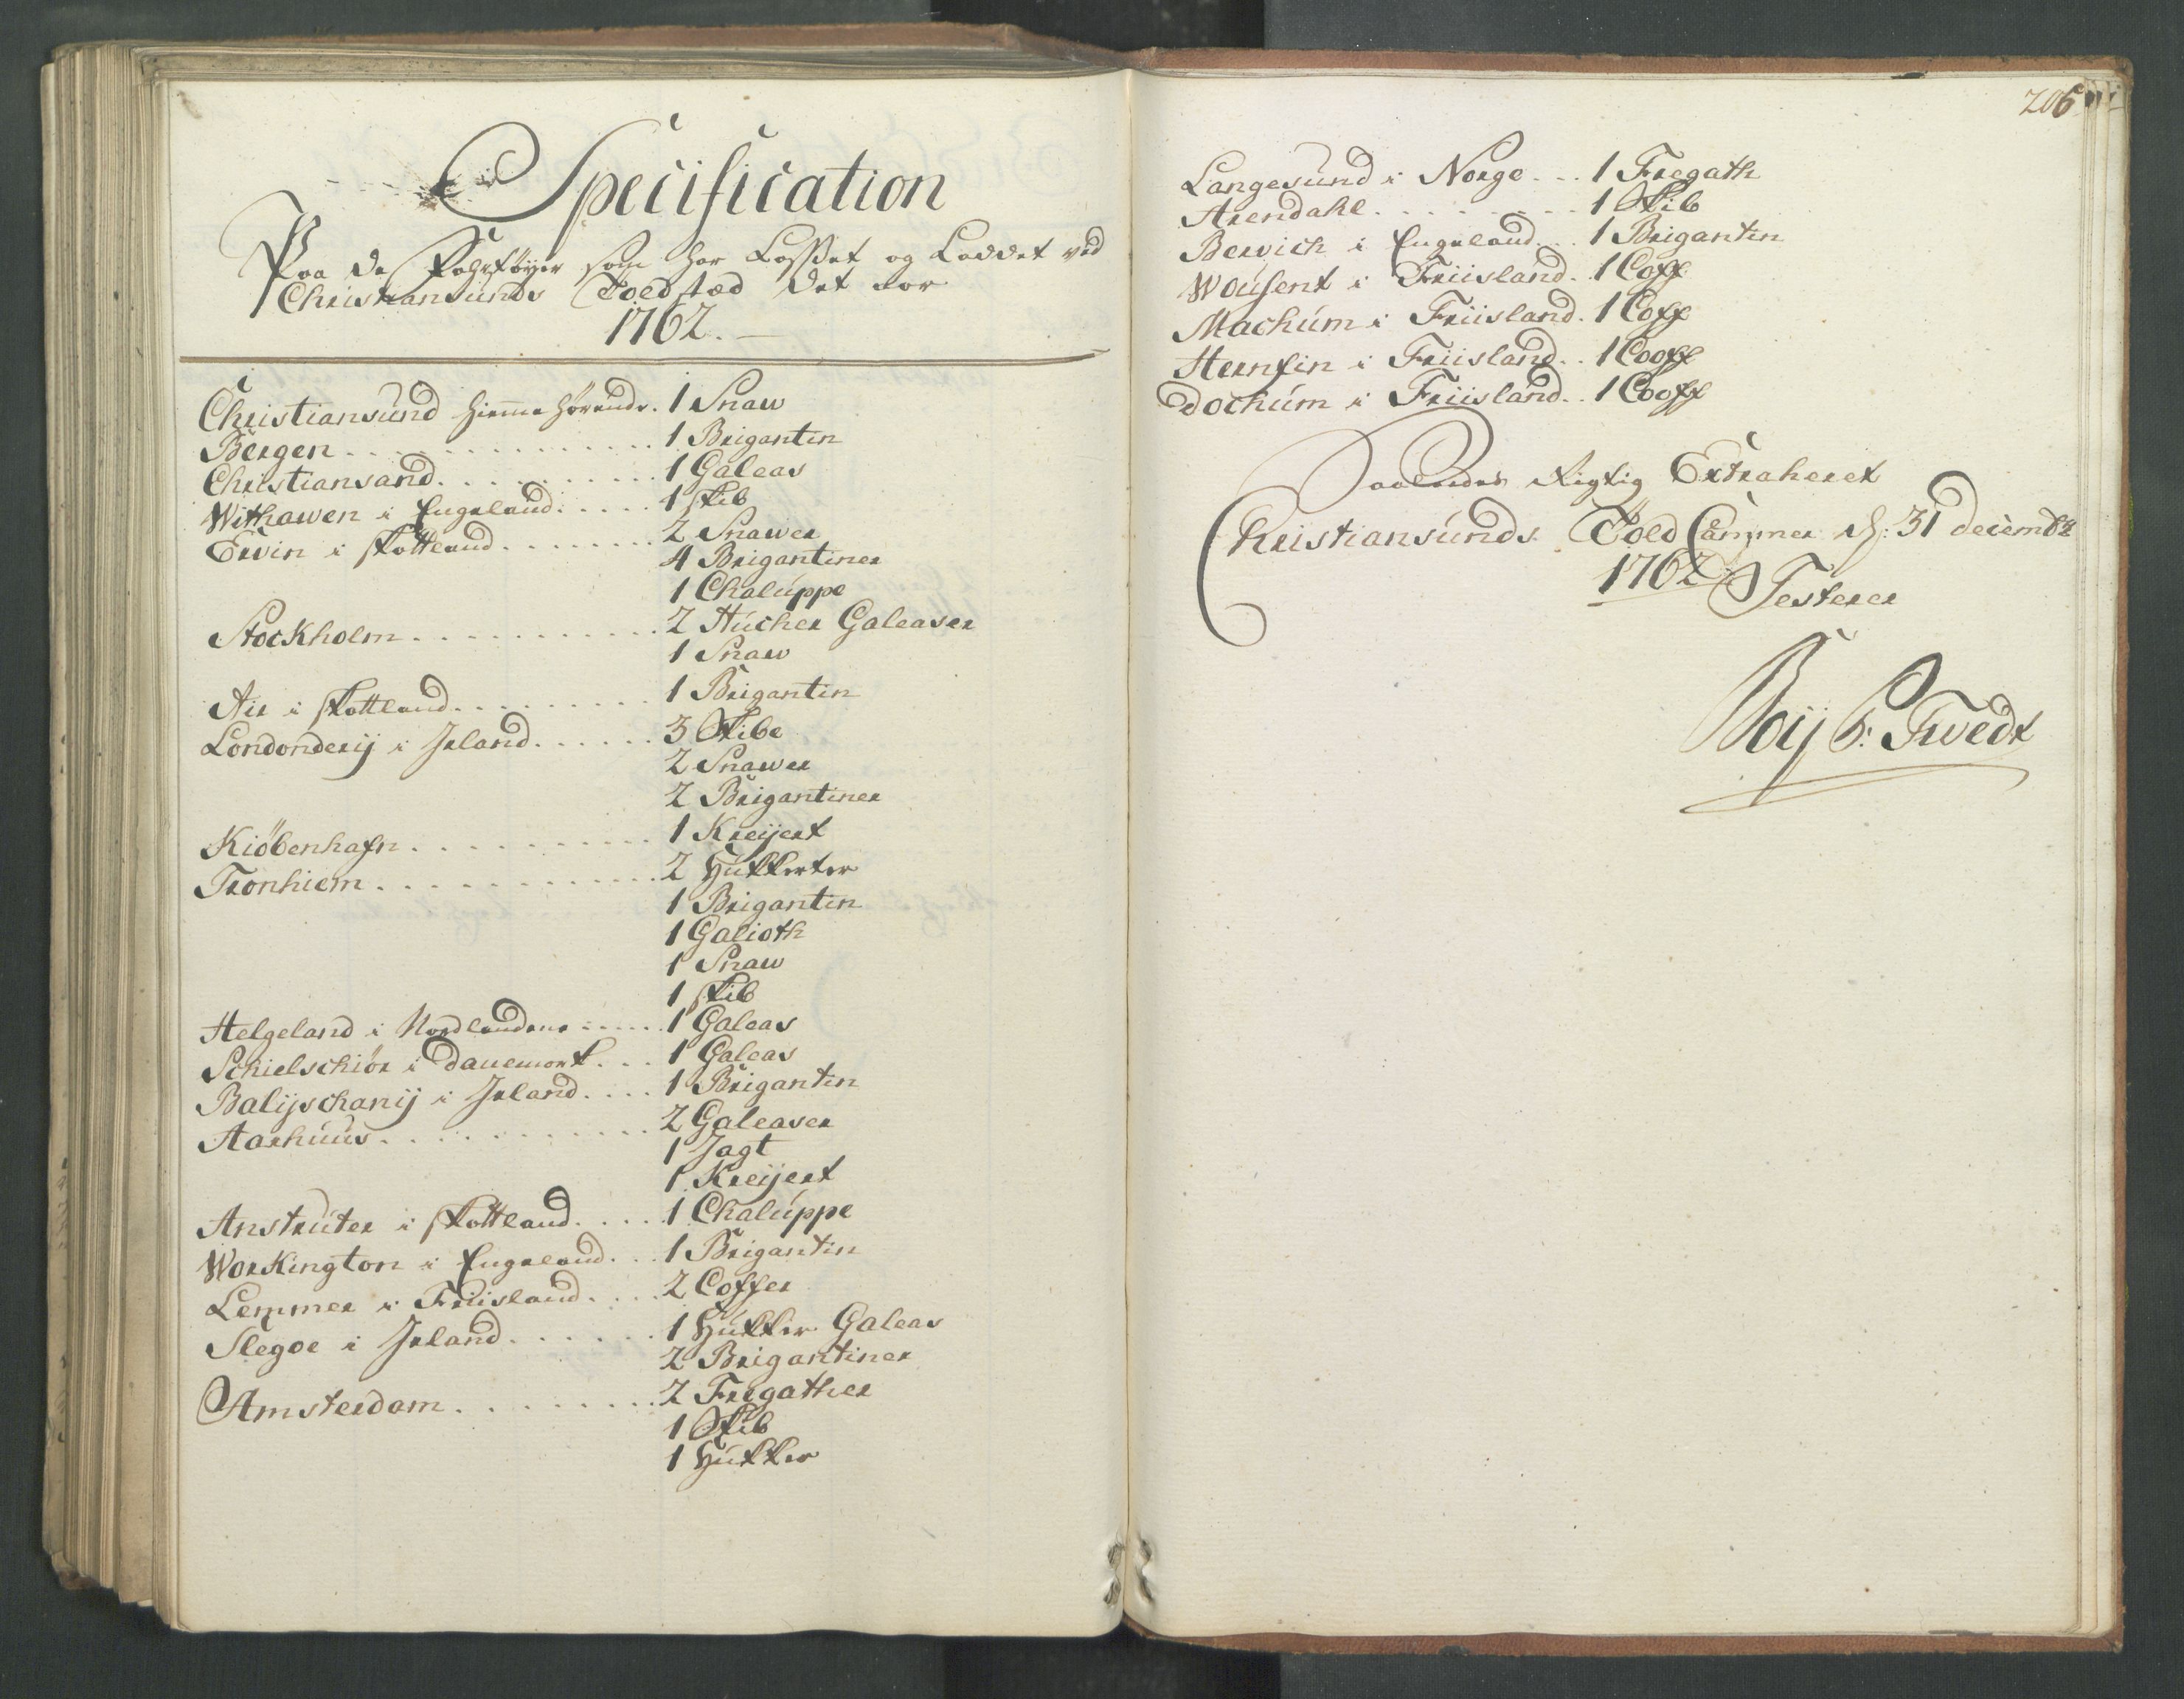 Specification
Paa de Fahrtøyer som har Losset og Laddet ved
Christiansunds Toldstæd det aar
1762.
Christiansund hiemmehørende. 1 Snaw
Bergen . . . 1 Brigantin
Christiansand . . . 1 Galeas
Withawen i Engeland . . . 1 skib
Ervin i skottland . . . 2 Snawer
4 Brigantiner
1 Chaluppe
Stockholm . . . 2 Hucher Galeaser
1 Snaw
Air i skottland . . . 1 Brigantin
Londonderij i Jrland . . . 3 Skibe
2 Snawer
2 Brigantiner
Kiöbenhafn . . . 1 Kreijert
Tronhiem . . . 2 Hukkerter
1 Brigantin
1 Galioth
1 Snaw
1 skib
Helgeland i Nordlandene . . . 1 Galeas
Schielschiör i Danemark . . . 1 Galeas
Balijschanij i Jrland . . . 1 Brigantin
Aarhuus . . . 2 Galeaser
1 Jagt
1 Kreijert
Anstruter i skottland . . . 1 Chaluppe
Workington i Engeland . . . 1 Brigantin
Lemmer i Friisland . . . 2 Coffer
Slegoe i Jrland . . . 1 Hukker Galeas
2 Brigantiner
Amsterdam . . . 2 Fregather
1 Skib
1 Hukker
206
Langesund i Norge . . . 1 Fregath
Arendahl . . . 1 Skib
Bervich i Engeland . . . 1 Brigantin
Wousent i Friisland . 1 Coff
Machum i Friisland . 1 Coff
Hernfin i Friisland . . 1 Cooff
Dochum i Friisland . . 1 Cooff
Saaledes Rigtig Extraheret
Christiansunds Told Cammer d: 31 decembr
1762 Testerer
Boij P: Tvedt